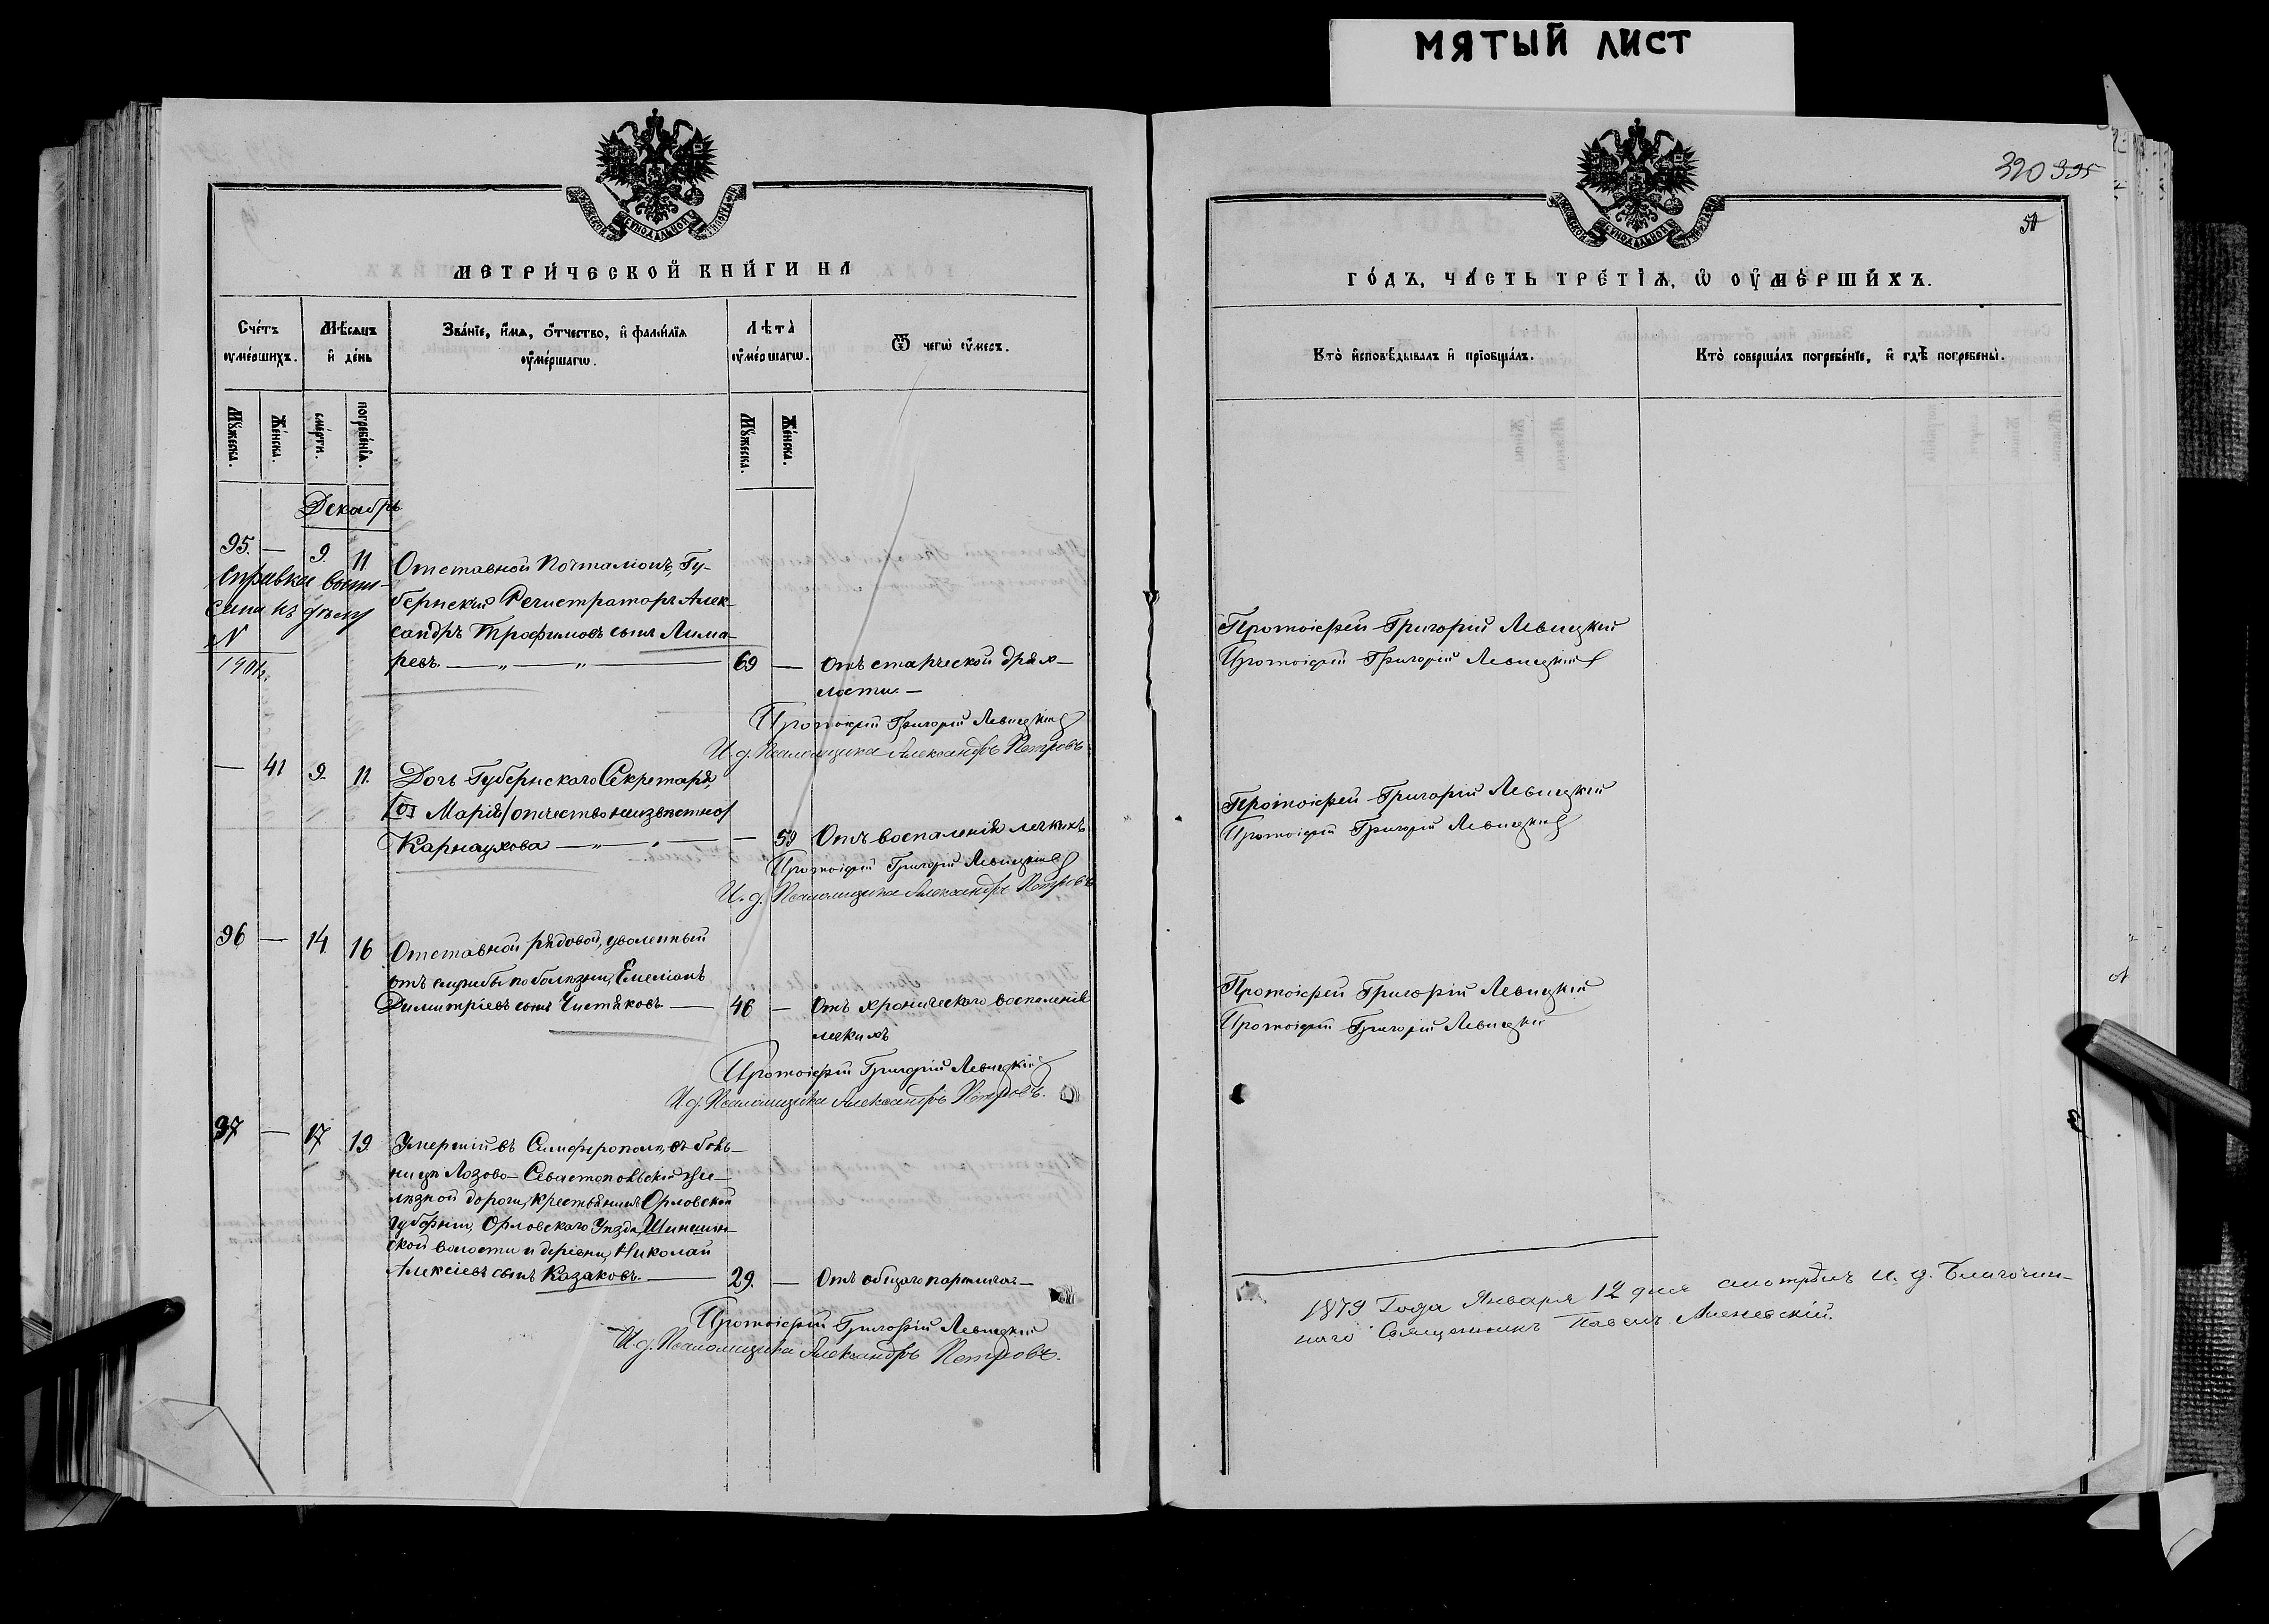 МЯТЫЙ ЛИСТ
МЕТРИ́ЧЕСКОЙ КНИ́ГИ НА
Сче́тъ ᲂу҆ме́ршихъ.
Мѣ́сяцъ и҆ де́нь
Зва́нїе, и҆́мѧ, ѻ҆́тчество, и҆ фами́лїѧ ᲂу҆ме́ршагѡ.
Лѣта̀ ᲂу҆ме́ршагѡ.
Ѿ чегѡ̀ ᲂу҆́меръ.
Мꙋ́жеска.
Же́нска.
сме́рти.
погребе́нїѧ.
Мꙋ́жеска.
Же́нска.
Декабрь
95. — 9. 11.
Справка
къ дѣлу
N
Отставной Почталіонъ, Гу-
бернскій Регистраторъ Алек-
сандръ Трофимовъ сынъ Лима-
ревъ. — „ — „ — 69 — Отъ старческой дрях-
лости. —
Протоіерей Григорій Левицкій
И. д. Псаломщика Александръ Петровъ
— 41 9. 11. Дочь Губернскаго Секретаря,
Марія /отчество неизвѣстно/
Карнаухова — „ — „ — — 59 Отъ воспаленія легкихъ
Протоіерей Григорій Левицкій
И. д. Псаломщика Александръ Петровъ
96 — 14. 16 Отставной рядовой, уволенный
отъ службы по болѣзни, Емеліанъ
Димитріевъ сынъ Чистяковъ — 46 — Отъ хроническаго воспаленія
легкихъ
Протоіерей Григорій Левицкій
И. д. Псаломщика Александръ Петровъ.
97 — 17 19 Умершій въ Симферополѣ, въ боль-
ницѣ Лозово-Севастопольской же-
лѣзной дороги, крестьянинъ Орловской
Губерніи, Орловскаго Уѣзда,
ской волости и деревни, Николай
Алексіевъ сынъ Казаковъ. — 29. — Отъ общаго
Протоіерей Григорій Левицкій
И. д. Псаломщика Александръ Петровъ.
320 335
ГО́ДЪ, ЧА́СТЬ ТРЕ́ТЇѦ, Ѡ҆ ОУ҆МЕ́РШИХЪ.
Кто̀ и҆сповѣ́дывалъ и҆ прїобща́лъ.
Кто̀ соверша́лъ погребе́нїе, и҆ гдѣ̀ погребены̀.
Протоіерей Григорій Левицкій
Протоіерей Григорій Левицкій
Протоіерей Григорій Левицкій
Протоіерей Григорій Левицкій
Протоіерей Григорій Левицкій
Протоіерей Григорій Левицкій
1879 Года Января 12 дня смотрѣлъ И. д. Благочин-
наго Священникъ Павелъ